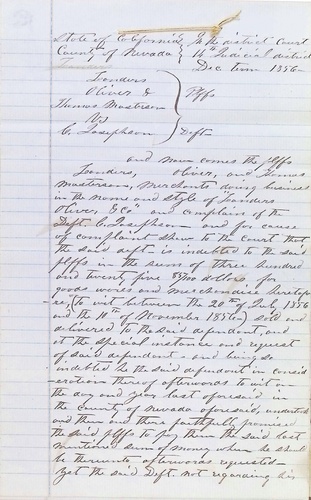 State of California } In the district Court
County of Nevada } 14th Judicial district
Dec term 1856
Landers
Oliver &
Thomas Masterson } Plffs
Vs
C. Josephson } Deft
and now comes the plffs
Landers, Oliver, and Thomas
Masterson, Merchants doing business
in the name and style of "Landers
Oliver & Co" and complains of the
Deft. C. Josephson and for cause
of complaint shew to the court that
the said deft. is indebted to the said
plffs in the sum of three hundred
and twenty five /100 dollars for
goods wares and merchandise heretofo
re, (to wit between the 20th of July 1856
and the 10th of November 1856) sold and
delivered to the said defendant, and
at the special instance and request
of said defendant - and being so
indebted he the said defendant in consid
eration thereof afterwards to wit on
the day and year last aforesaid in
the county of Nevada aforesaid, undertook
and then and there faithfully promised
the said plffs to pay them the said last
mentioned sum of money when he should
be thereunto afterwards requested -
Yet the said Deft. not regarding his